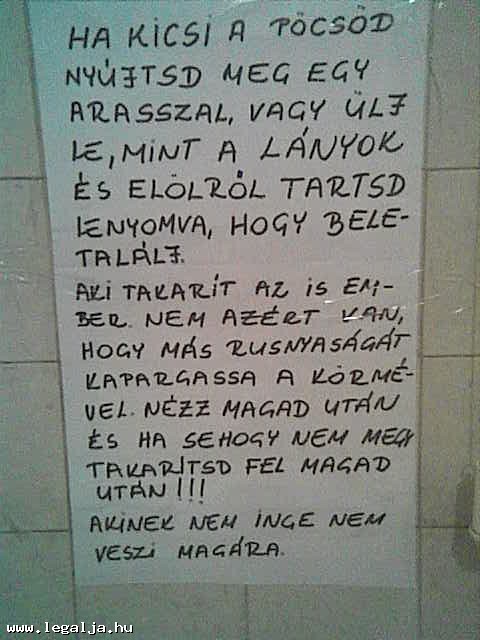 HA KICSI A PÖCSÖD
NYÚJTSD MEG EGY
ARASSZAL, VAGY ÜLJ
LE, MINT A LÁNYOK
ÉS ELÖLRŐL TARTSD
LENYOMVA, HOGY BELE-
TALÁLJ.
AKI TAKARÍT AZ IS EM-
BER. NEM AZÉRT VAN,
HOGY MÁS RUSNYASÁGÁT
KAPARGASSA A KÖRMÉ-
VEL. NÉZZ MAGAD UTÁN
ÉS HA SEHOGY NEM MEGY
TAKARÍTSD FEL MAGAD
UTÁN!!!
AKINEK NEM INGE NEM
VESZI MAGÁRA.
www.legalja.hu